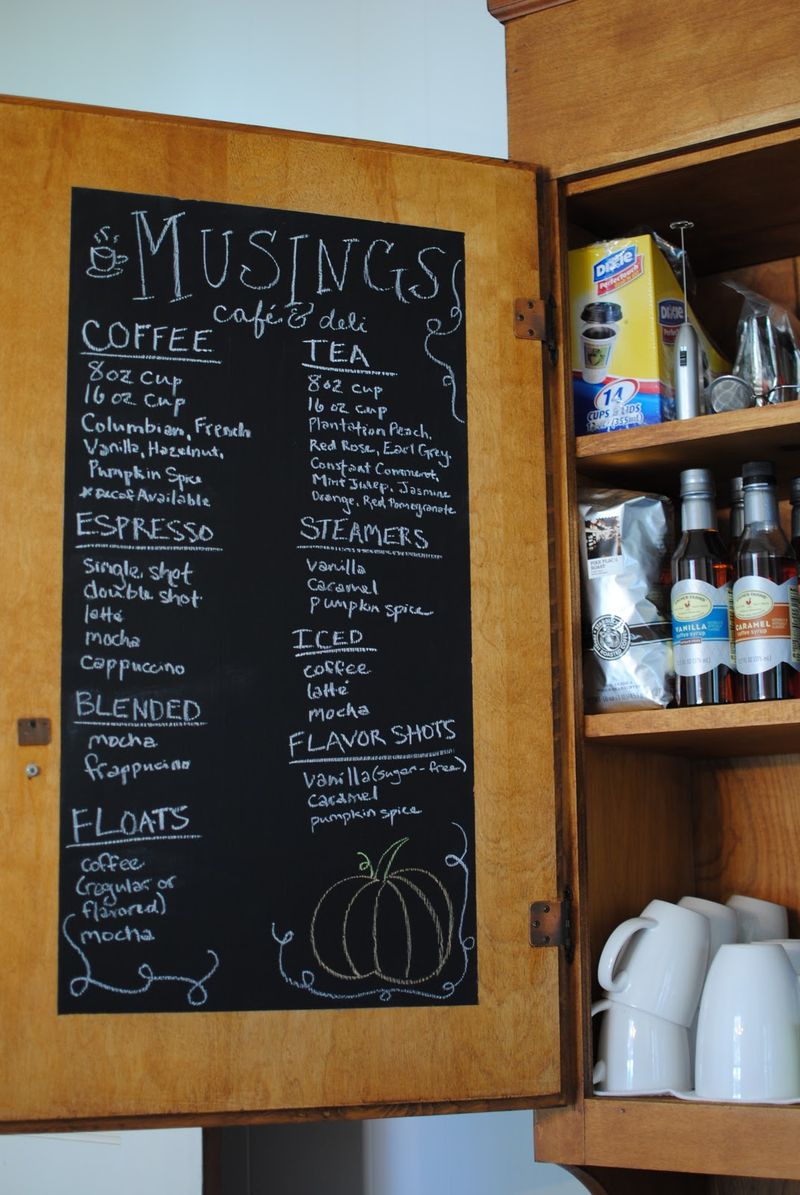 MUSINGS
café & deli
COFFEE
8oz cup
16 oz cup
Columbian, French
Vanilla, Hazelnut,
Pumpkin Spice
*Decaf Available
ESPRESSO
single shot
double shot
latté
mocha
cappuccino
BLENDED
mocha
frappuccino
FLOATS
coffee
(regular or
flavored)
mocha
TEA
8oz cup
16 oz cup
Plantation Peach,
Red Rose, Earl Grey,
Constant Comment,
Mint Julep, Jasmine
Orange, Red Pomegranate
STEAMERS
Vanilla
Caramel
pumpkin spice
ICED
coffee
latté
mocha
FLAVOR SHOTS
Vanilla (sugar-free)
Caramel
pumpkin spice
Dixie
PerfecTouch
Dixie
14
CUPS & LIDS
PIKE PLACE
ROAST
VANILLA
coffee syrup
CARAMEL
coffee syrup